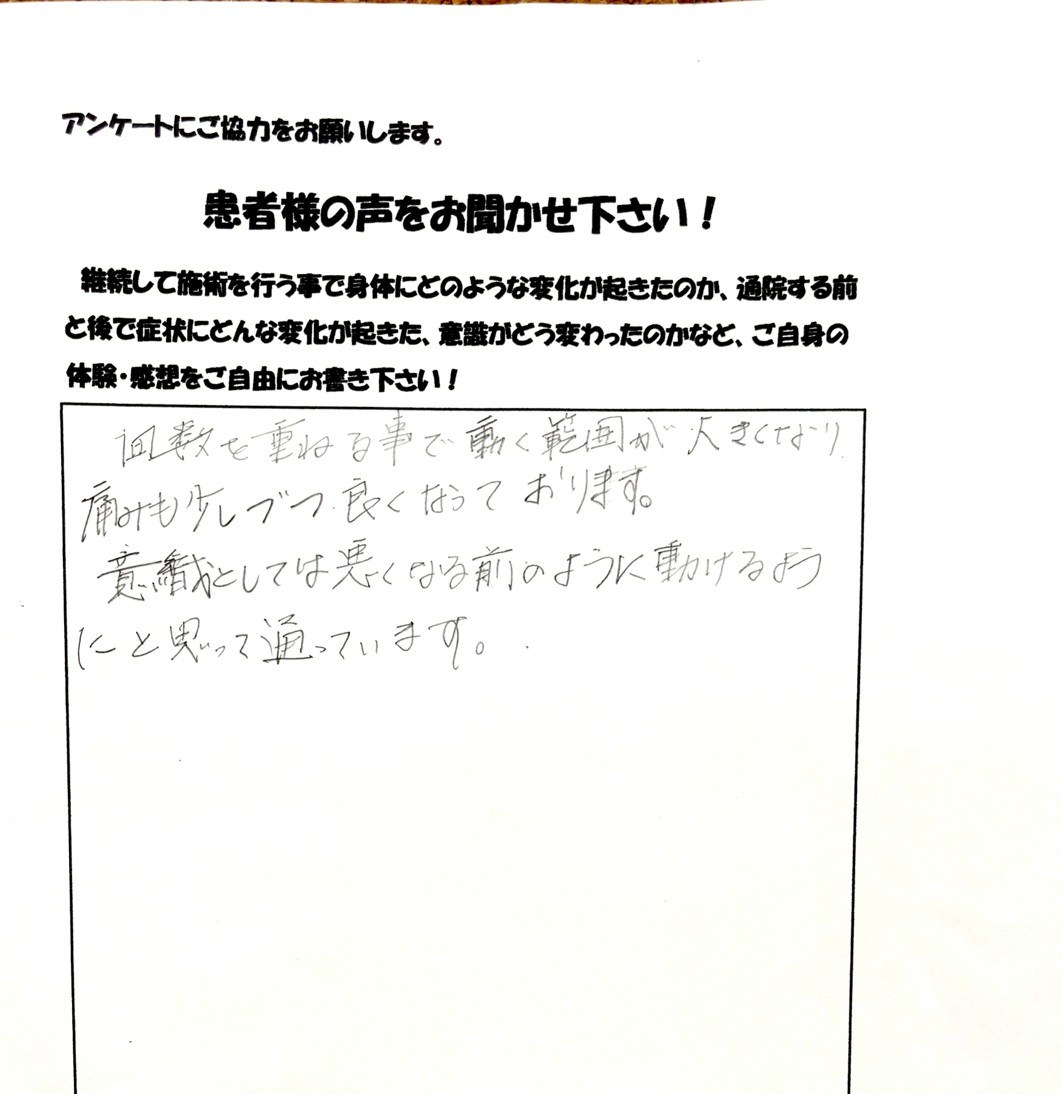 アンケートにご協力をお願いします。
患者様の声をお聞かせ下さい！
継続して施術を行う事で身体にどのような変化が起きたのか、通院する前
と後で症状にどんな変化が起きた、意識がどう変わったのかなど、ご自身の
体験・感想をご自由にお書き下さい！
回数を重ねる事で動く範囲が大きくなり
痛みも少しづつ良くなっております。
意識としては悪くなる前のように動けるよう
にと思って通っています。